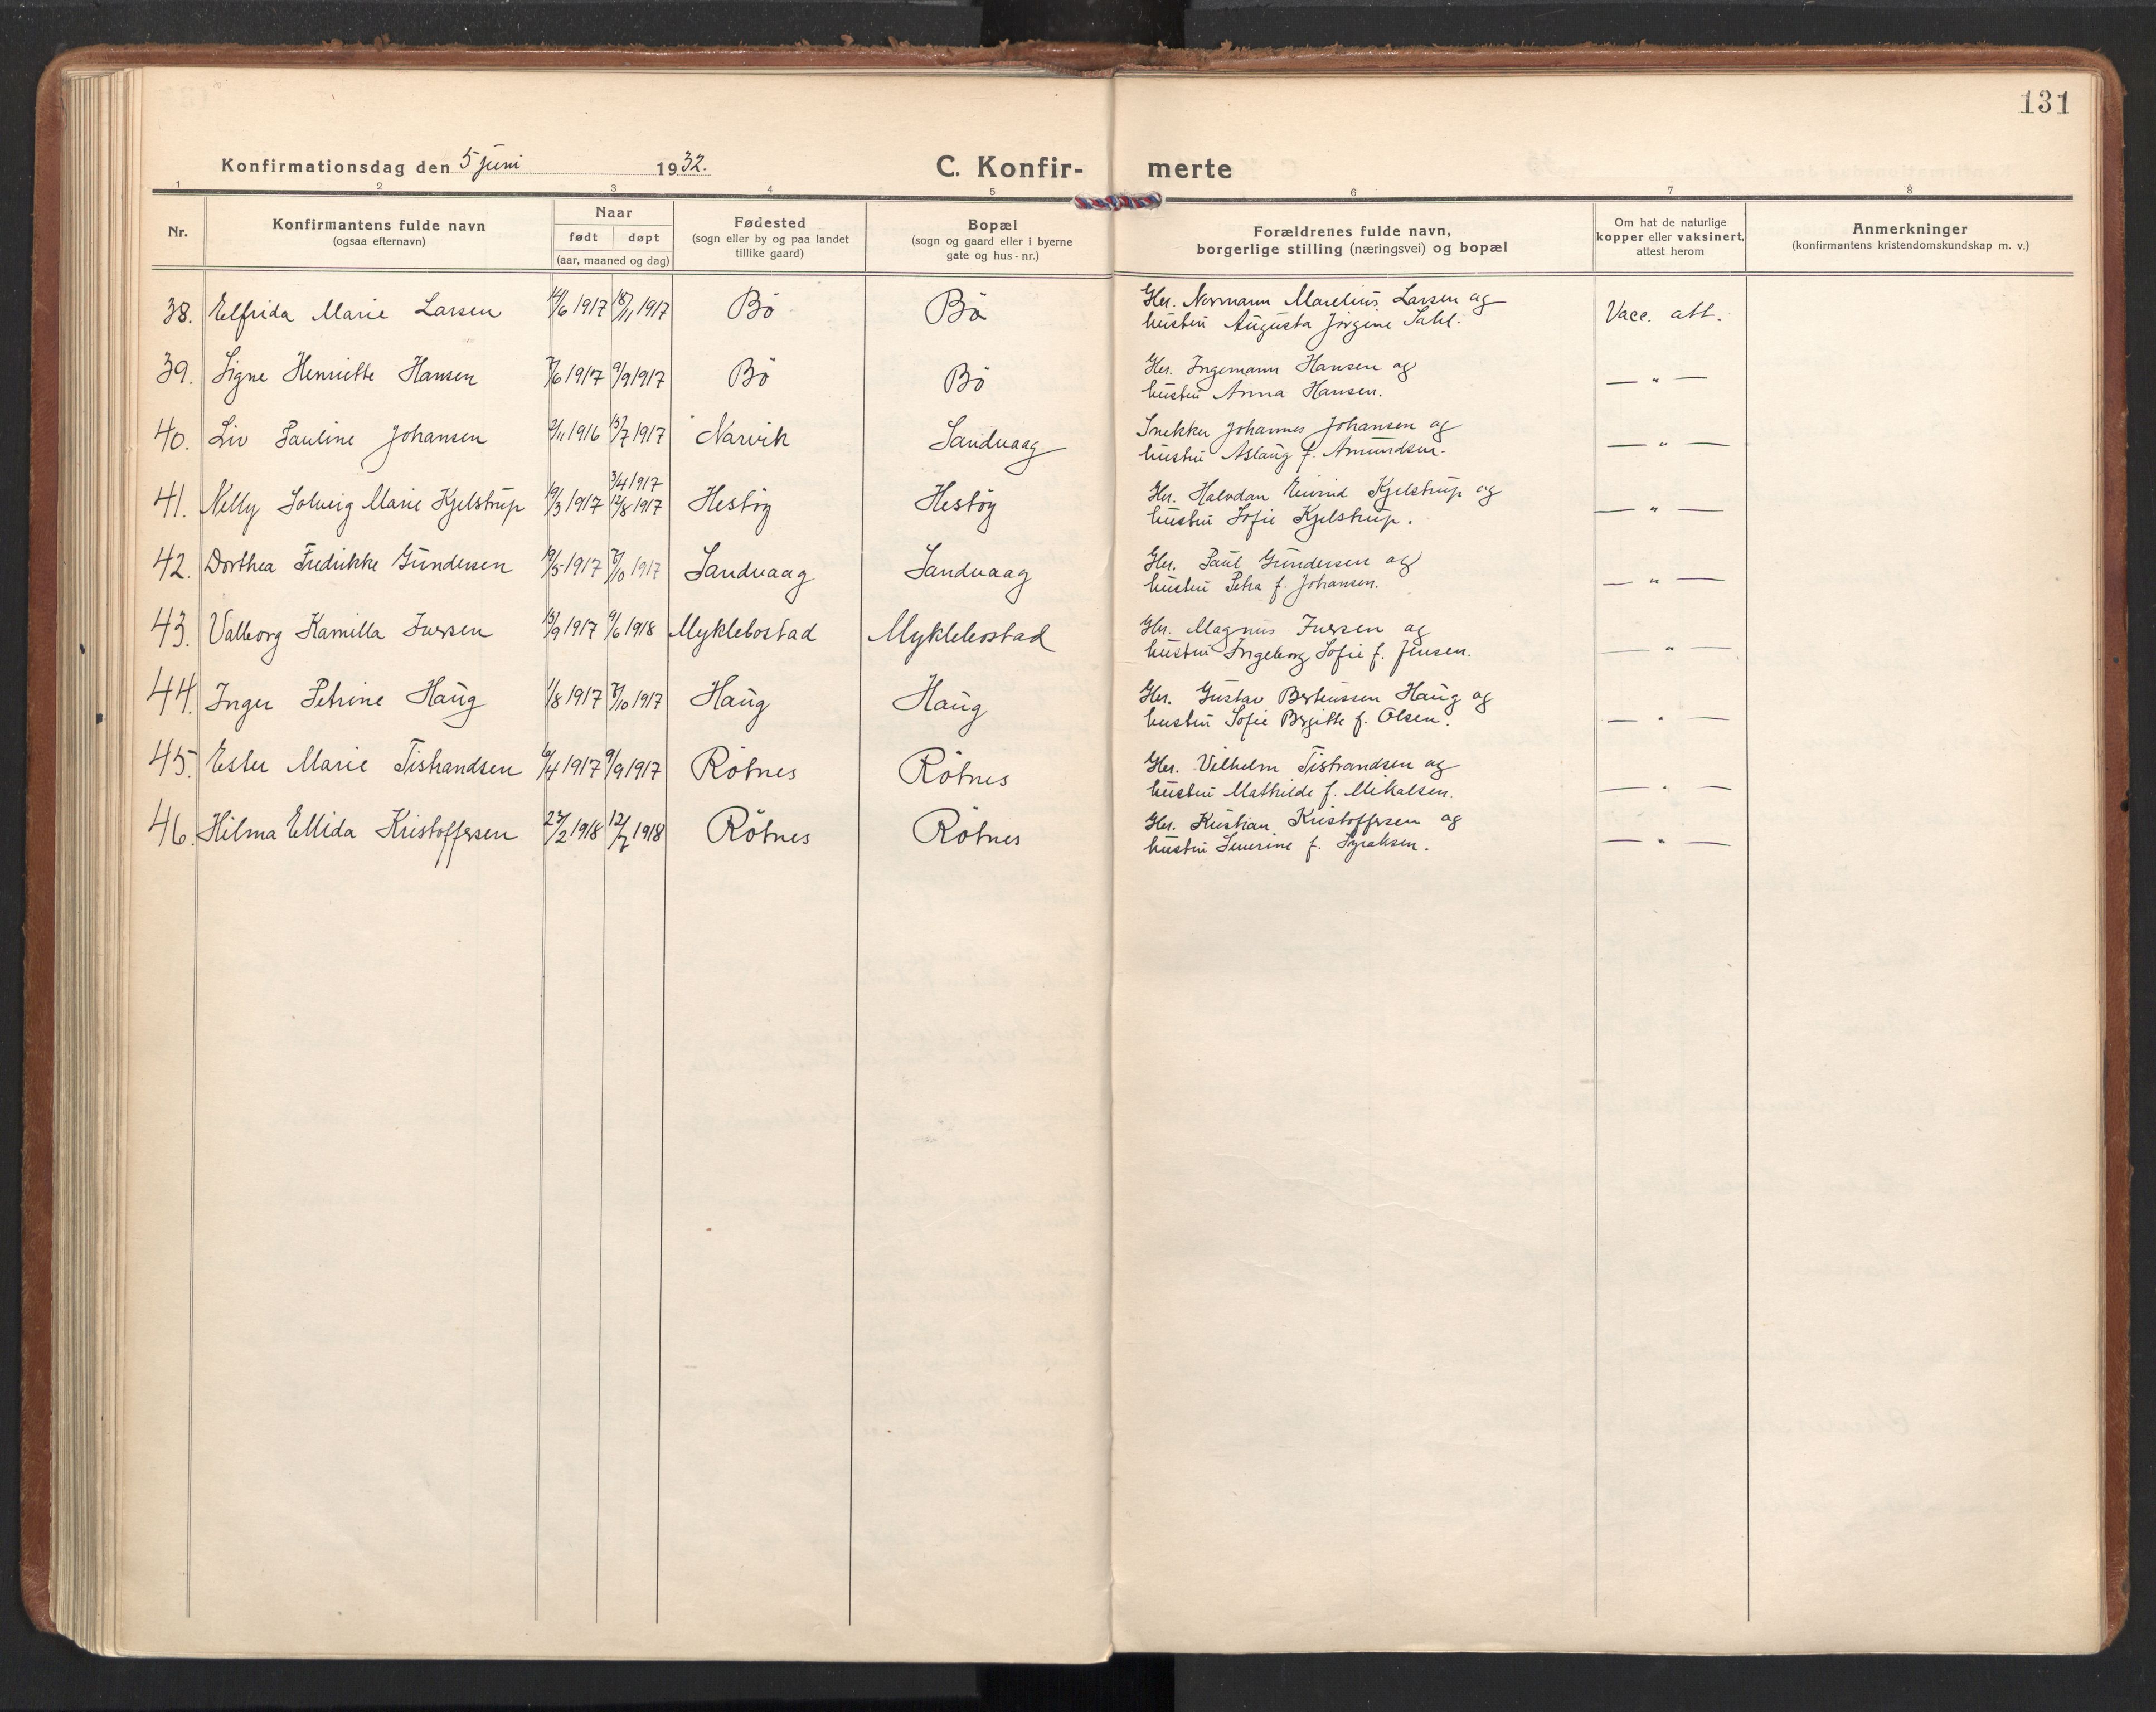 131
Konfirmationsdag den 5 juni 1932. C. Konfir- merte
1 2 3 4 5 6 7 8
Nr. Konfirmantens fulde navn (ogsaa efternavn) Naar født døpt (aar, maaned og dag) Fødested (sogn eller by og paa landet tillike gaard) Bopæl (sogn og gaard eller i byerne gate og hus-nr.) Forældrenes fulde navn, borgerlige stilling (næringsvei) og bopæl Om hat de naturlige kopper eller vaksinert, attest herom Anmerkninger (konfirmantens kristendomskundskap m. v.)
38. Elfrida Marie Larsen 14/6 1917 18/11 1917 Bö Bö Gbr. Normann Marelius Larsen og Vacc. att.
hustru Augusta Jörgine
39. Signe Henriette Hansen 7/6 1917 9/9 1917 Bö Bö Gbr. Ingemann Hansen og — " —
hustru Anna Hansen.
40. Liv Pauline Johansen 2/11 1916 15/7 1917 Narvik Sandvaag Snekker Johannes Johansen og — " —
hustru Aslaug f. Amundsen.
3/4 1917
41. Nelly Solveig Marie Kjelstrup 19/3 1917 12/8 1917 Hestöy Hestöy Gbr. Halvdan Eivind Kjelstrup og — " —
hustru Sofie Kjelstrup.
42. Dorthea Fredrikke Gundersen 19/5 1917 7/10 1917 Sandvaag Sandvaag Gbr. Paul Gundersen og — " —
hustru Petra f. Johansen.
43. Valborg Kamilla Iversen 13/9 1917 9/6 1918 Myklebostad Myklebostad Gbr. Magnus Iversen og — " —
hustru Ingeborg Sofie f. Jensen.
44. Inger Petrine Haug 1/8 1917 7/10 1917 Haug Haug Gbr. Gustav Berteussen Haug og — " —
hustru Sofie Birgitte f. Olsen.
45. Ester Marie Tistrandsen 6/4 1917 9/9 1917 Rötnes Rötnes Gbr. Vilhelm Tistrandsen og — " —
hustru Mathilde f. Mikalsen.
46. Hilma Ellida Kristoffersen 23/2 1918 12/7 1918 Rötnes Rötnes Gbr. Kristian Kristoffersen og — " —
hustru Severine f. Syraksen.